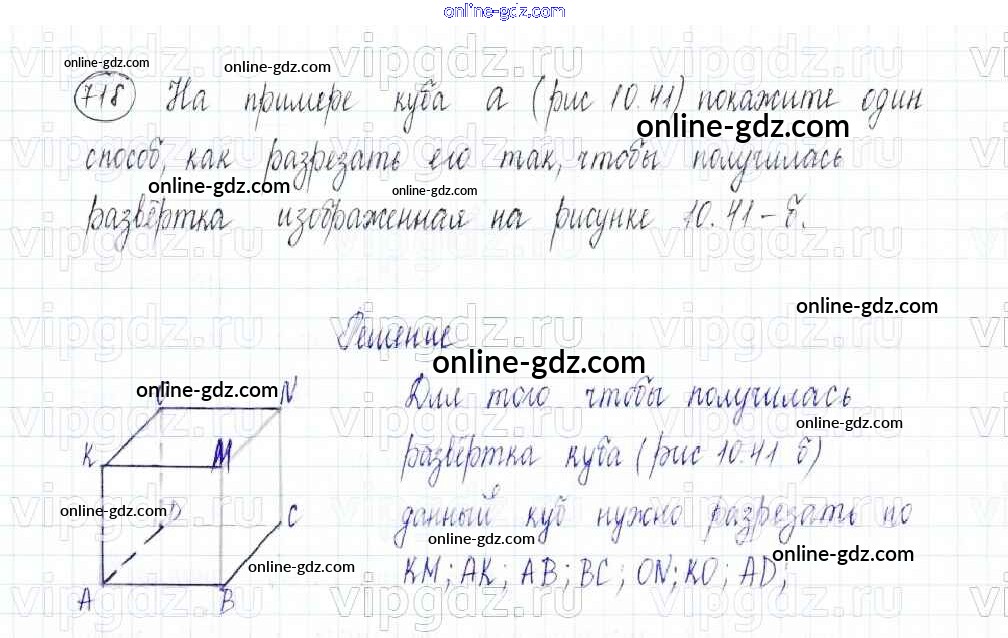 online-gdz.com
vipgdz.ru vipgdz.ru vipgdz.ru
online-gdz.com
online-gdz.com
718 На примере куба а (рис 10.41) покажите один
online-gdz.com
способ, как разрезать его так, чтобы получилась
online-gdz.com
online-gdz.com
развёртка изображенная на рисунке 10.41-б.
online-gdz.com
Решение
online-gdz.com
online-gdz.com
N
Для того чтобы получилась
online-gdz.com
K
M
развёртка куба (рис 10.41 б)
online-gdz.com
D
C
данный куб нужно разрезать по
online-gdz.com
online-gdz.com
online-gdz.com
KM; AK; AB; BC; ON; KO; AD;
A
B